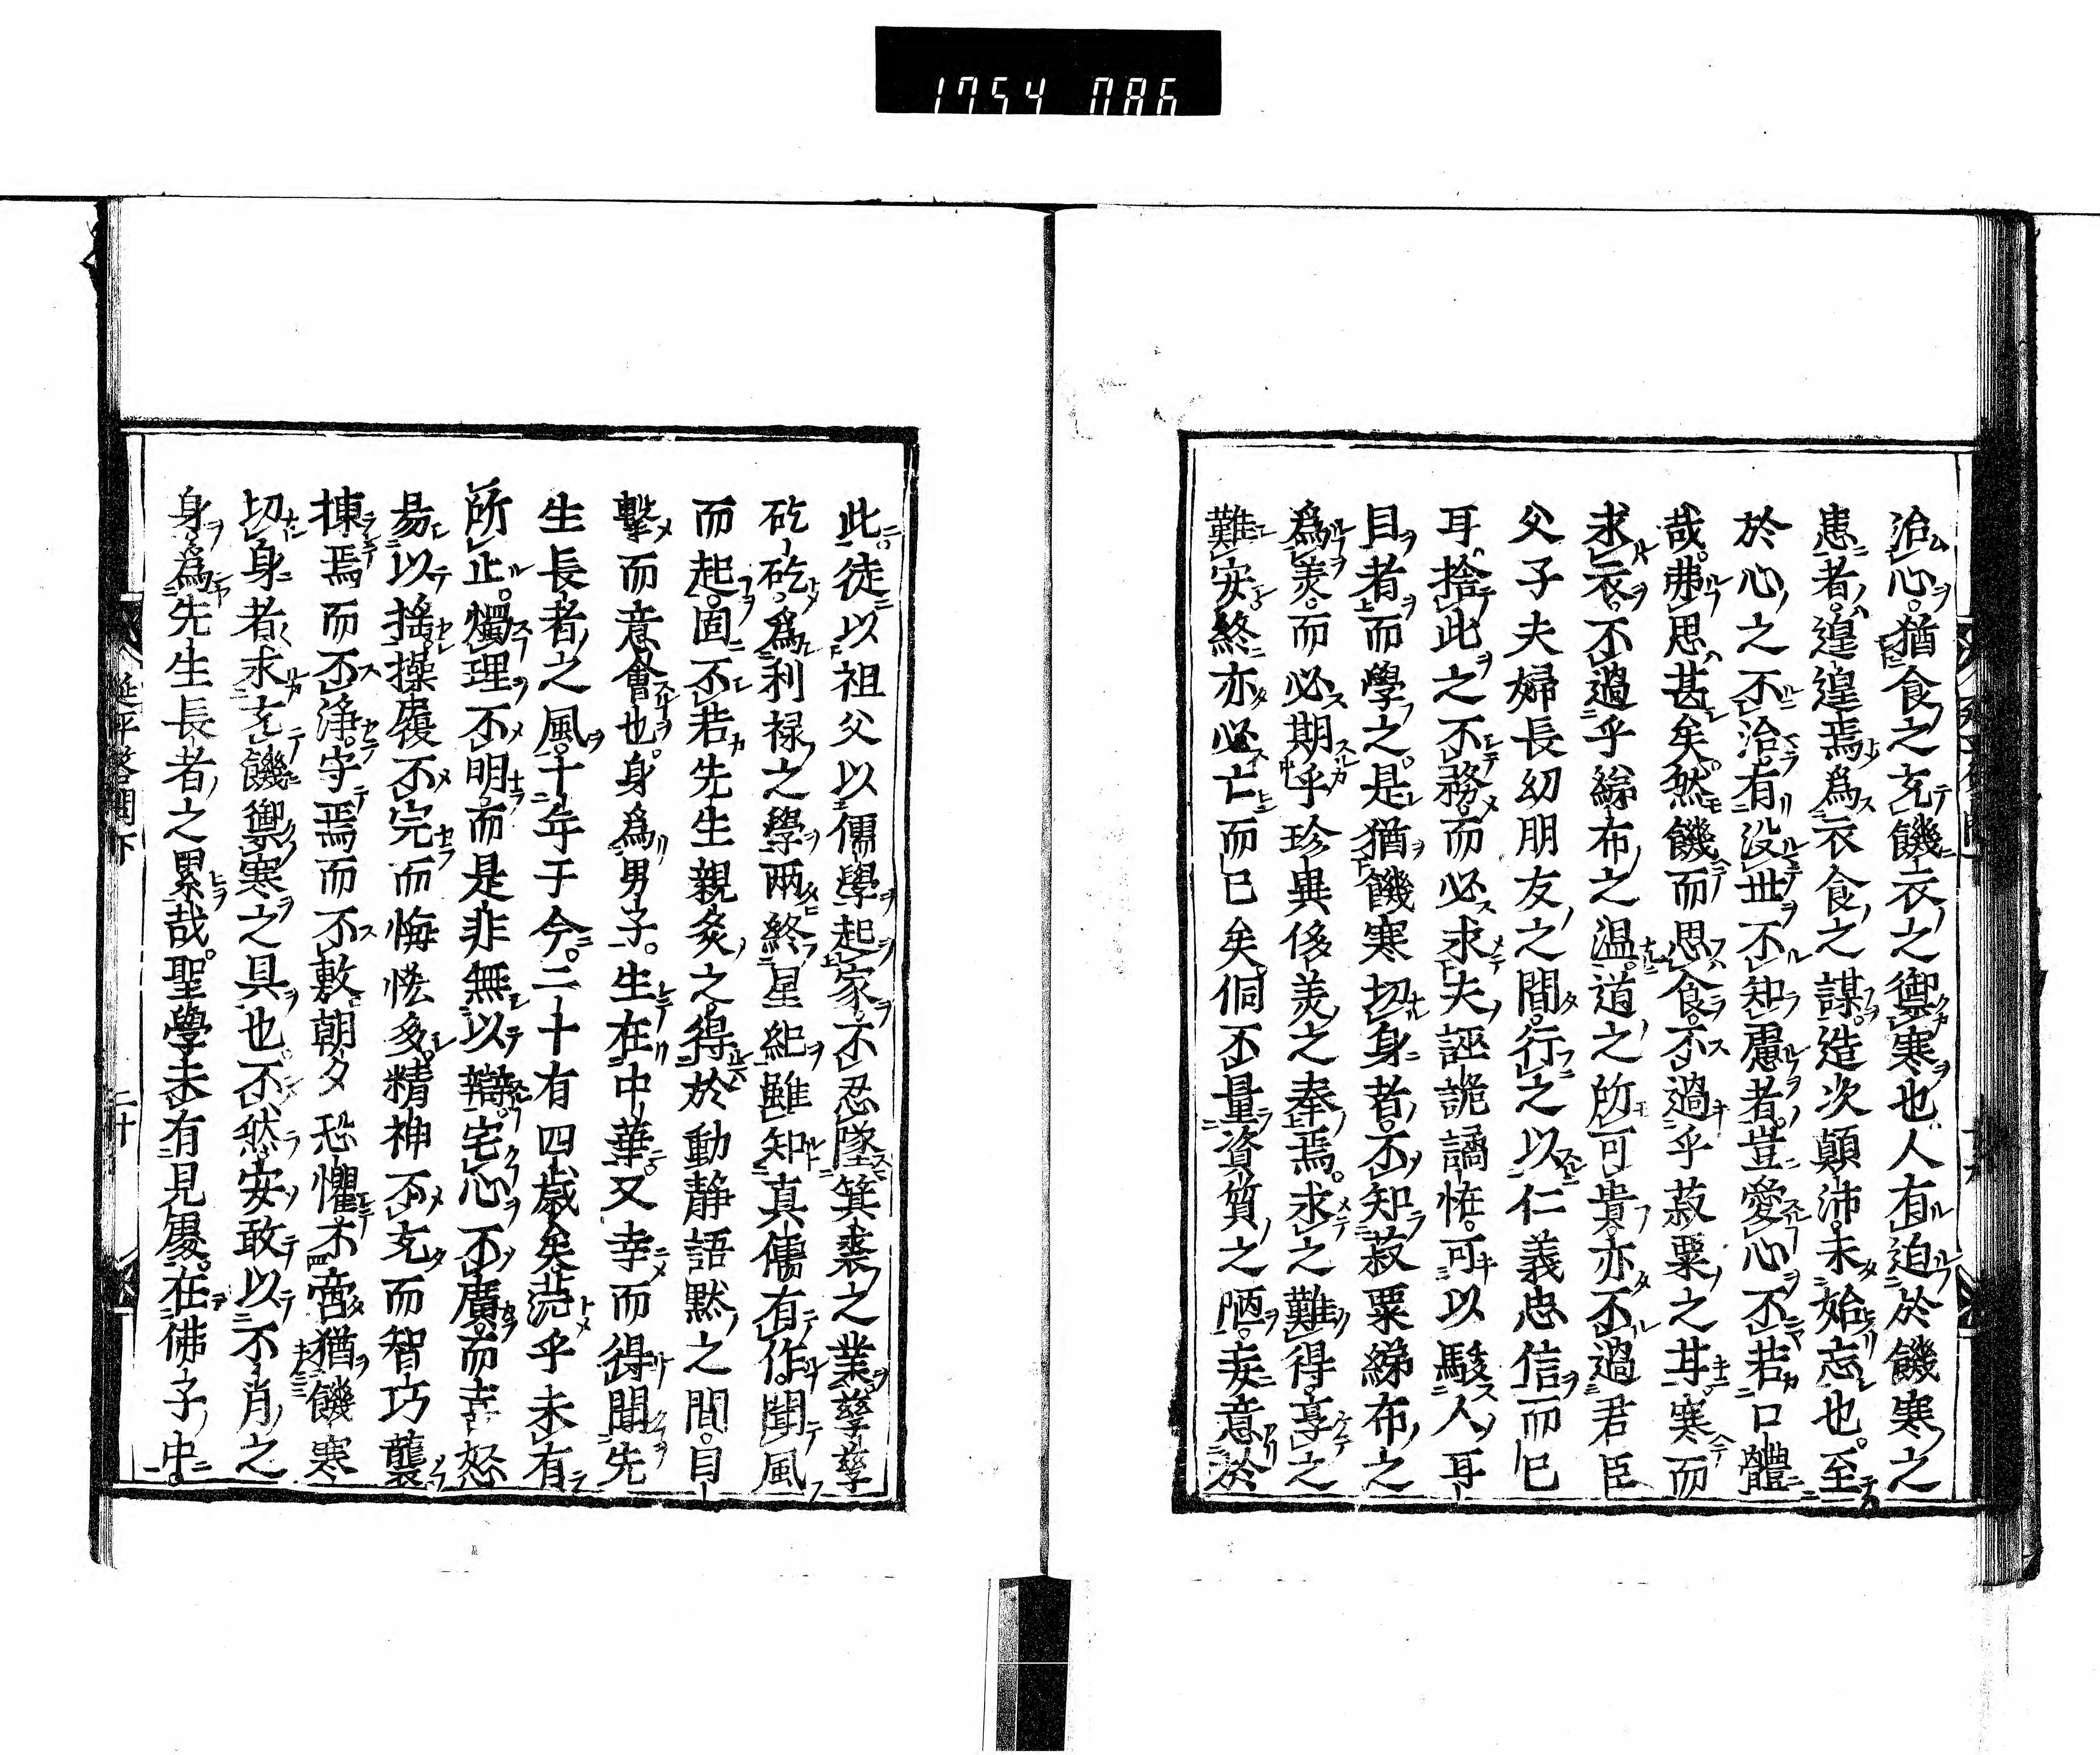 1754 086
治心。猶食之充饑衣之禦寒也人有迫於饑寒之
患者。遑遑焉爲衣食之謀。造次顛沛。未始忘也。至
於心之不治。有沒世不知慮者。豈愛心不若口體
哉。弗思甚矣。然饑而思食。不過乎菽粟之甘。寒而
求衣。不過乎綈布之温。道之所可貴。亦不過君臣
父子夫婦長幼朋友之間。行之以仁義忠信而已
耳。捨此之不務。而必求夫誣詭譎恠。可以駭人耳
目者而學之。是猶饑寒切身者。不知菽粟綈布之
爲羙。而必期乎珍異侈羙之奉焉。求之難得。享之
難安。終亦必亡而已矣。侗不量資質之陋。妄意於
此。徒以祖父以儒學起家。不忍墜箕裘之業。孳孳
矻矻。爲利禄之學。兩終星紀。雖知真儒有作。聞風
而起。固不若先生親炙之。得於動静語黙之間。目
擊而意會也。身爲男子。生在中華。又幸而得聞先
生長者之風。十年于今。二十有四歳矣。茫乎未有
所止。燭理不明。而是非無以辯。宅心不廣。而喜怒
易以揺。操履不完。而悔恡多。精神不充。而智巧襲
揀焉而不浄。守焉而不敷。朝夕恐懼。不啻猶饑寒
切身者求充饑禦寒之具也。不然。安敢以不肖之
身。爲先生長者之累哉。聖學未有見處。在佛子中
延平答問下
二十